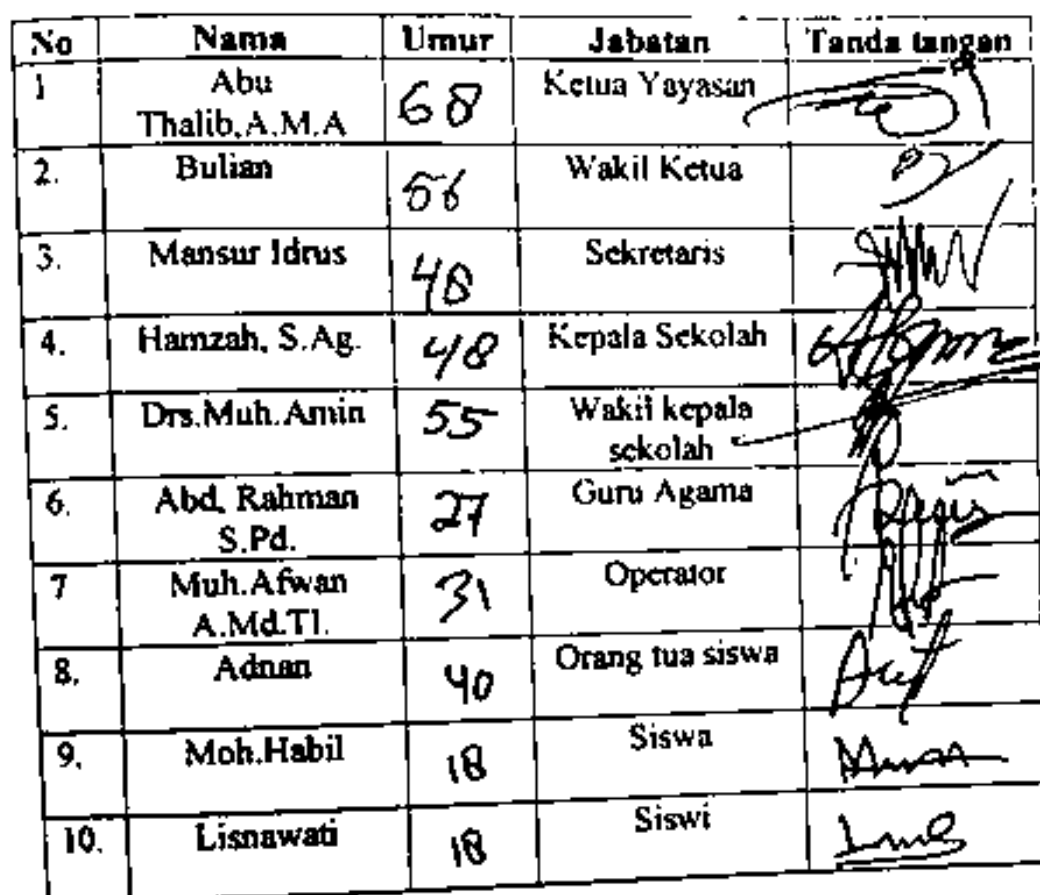 No Nama Umur Jabatan Tanda tangan
1 Abu 68 Ketua Yayasan
Thalib,A.M.A
2. Bulian 56 Wakil Ketua
3. Mansur Idrus 48 Sekretaris
4. Hamzah, S.Ag. 48 Kepala Sekolah
5. Drs.Muh.Amin 55 Wakil kepala
sekolah
6. Abd, Rahman 27 Guru Agama
S.Pd.
7 Muh.Afwan 31 Operator
A.Md.T1.
8. Adnan 40 Orang tua siswa
9. Moh.Habil 18 Siswa
10. Lisnawati 18 Siswi